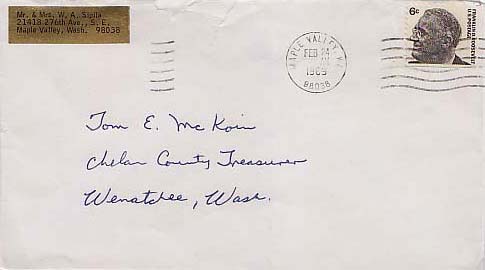 Mr. & Mrs. W. A. Sipila
21418 276th Ave., S. E.
Maple Valley, Wash. 98038
MAPLE VALLEY, WA
FEB 24
1969
98038
6¢
FRANKLIN D. ROOSEVELT
U.S. POSTAGE
Tom E. McKoin
Chelan County Treasurer
Wenatchee, Wash.